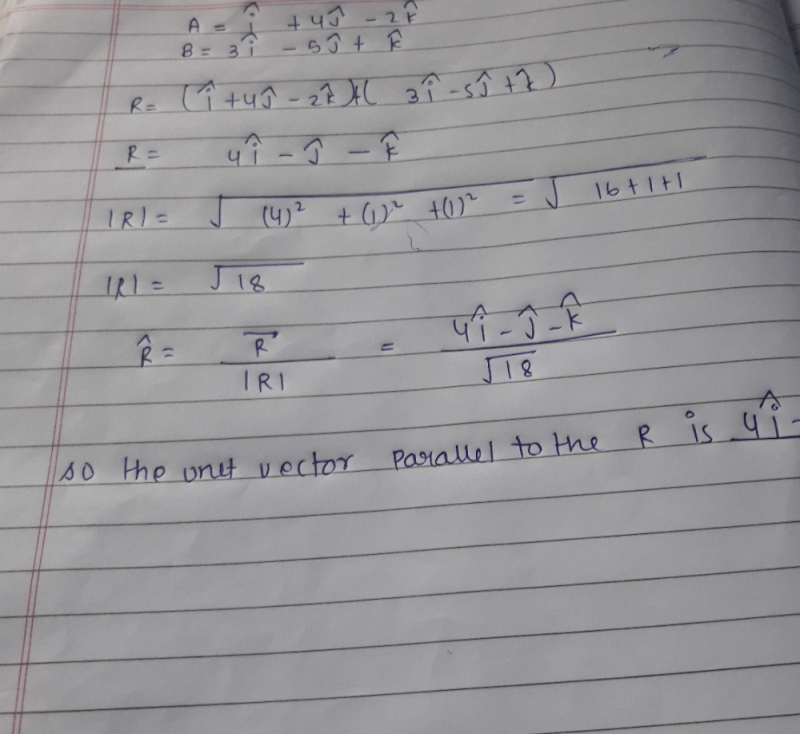 A = î + 4ĵ - 2k̂
B = 3î - 5ĵ + k̂
R = (î + 4ĵ - 2k̂) + ( 3î - 5ĵ + k̂)
R = 4î - ĵ - k̂
|R| = √ (4)² + (1)² + (1)² = √ 16+1+1
|R| = √18
R̂ = R⃗ / |R| = 4î - ĵ - k̂ / √18
so the unit vector parallel to the R is 4î -